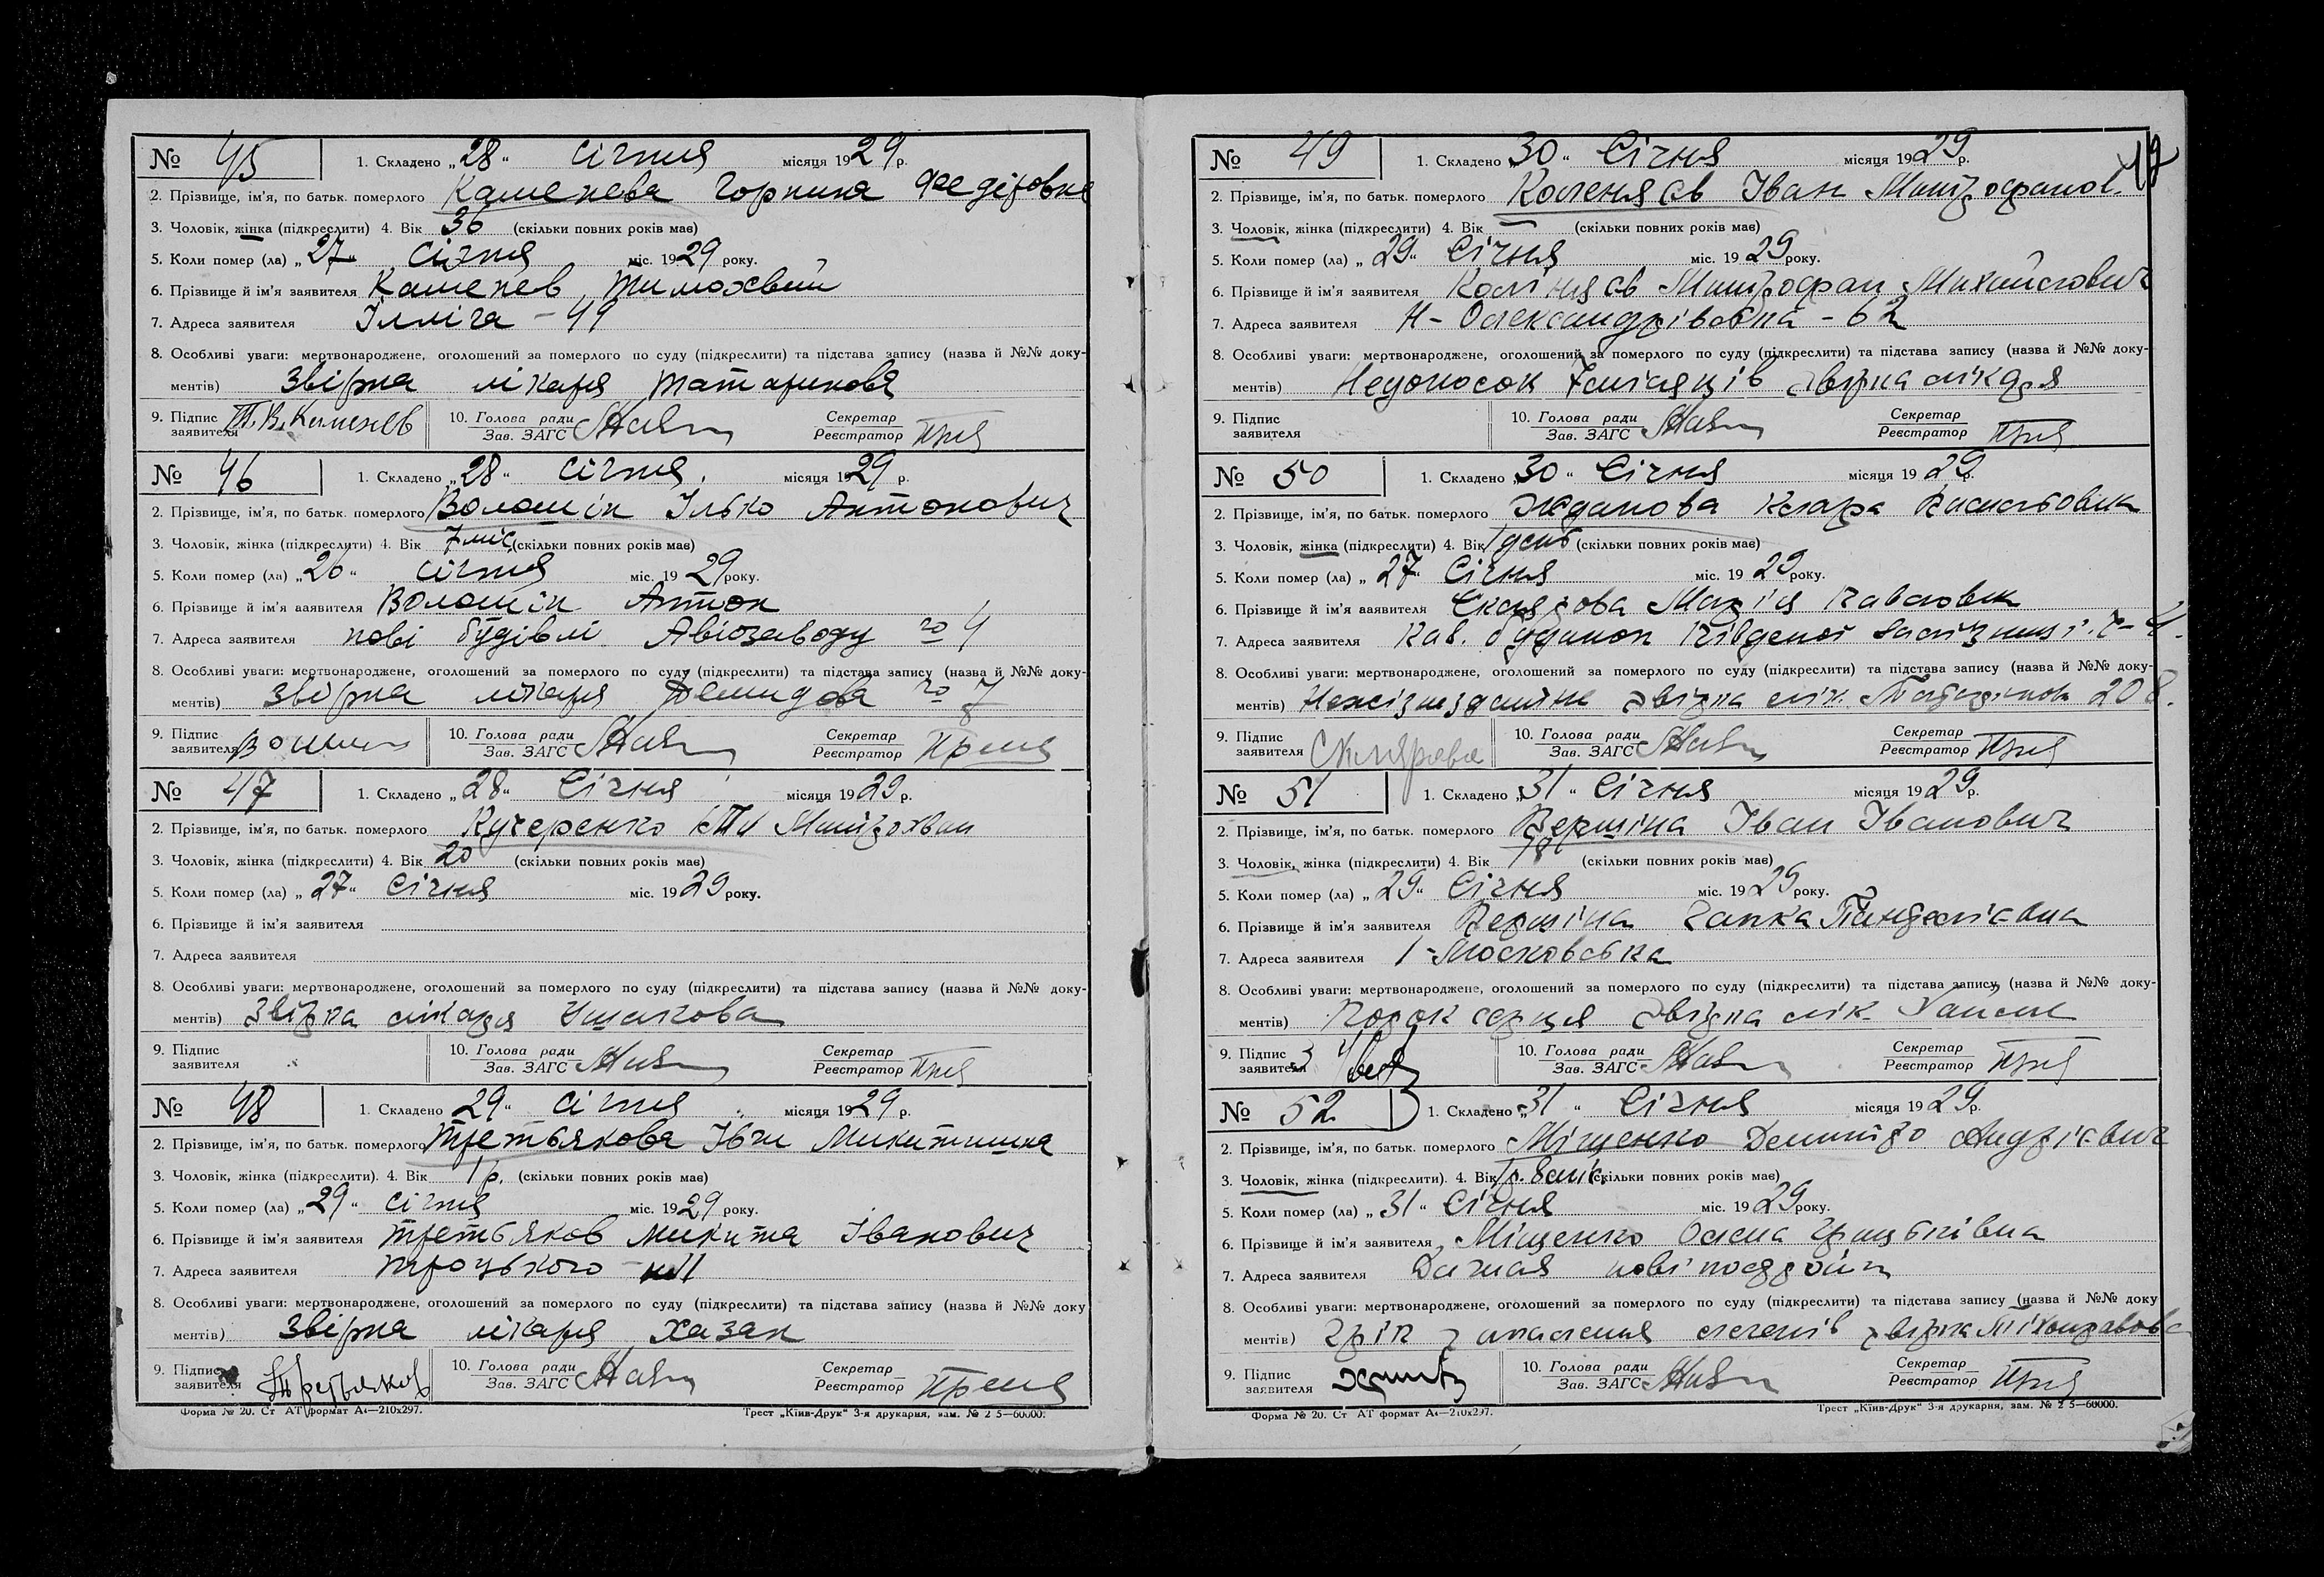 № 45 1. Складено „28“ січня місяця 1929 р.
2. Прізвище, ім'я, по батьк. померлого Каменева Горпина Федіровна
3. Чоловік, жінка (підкреслити) 4. Вік 36 (скільки повних років має)
5. Коли помер (ла) „27“ січня міс. 1929 року.
6. Прізвище й ім'я заявителя Каменев Тимохвий
7. Адреса заявителя Ілліча - 49
8. Особливі уваги: мертвонароджене, оголошений за померлого по суду (підкреслити) та підстава запису (назва й №№ доку-
ментів) звірка лікаря Татаринова
9. Підпис заявителя Т. В. Каменев 10. Голова ради Зав. ЗАГС Секретар Реєстратор
№ 46 1. Складено „28“ січня місяця 1929 р.
2. Прізвище, ім'я, по батьк. померлого Волошін Ілько Антонович
3. Чоловік, жінка (підкреслити) 4. Вік 7 міс. (скільки повних років має)
5. Коли помер (ла) „26“ січня міс. 1929 року.
6. Прізвище й ім'я заявителя Волошін Антон
7. Адреса заявителя нові будівлі Авіозаводу № 4
8. Особливі уваги: мертвонароджене, оголошений за померлого по суду (підкреслити) та підстава запису (назва й №№ доку-
ментів) звірка лікаря Демидова №
9. Підпис заявителя 10. Голова ради Зав. ЗАГС Секретар Реєстратор
№ 47 1. Складено „28“ Січня місяця 1929 р.
2. Прізвище, ім'я, по батьк. померлого Кучеренко Митрохван
3. Чоловік, жінка (підкреслити) 4. Вік 20 (скільки повних років має)
5. Коли помер (ла) „27“ Січня міс. 1929 року.
6. Прізвище й ім'я заявителя
7. Адреса заявителя
8. Особливі уваги: мертвонароджене, оголошений за померлого по суду (підкреслити) та підстава запису (назва й №№ доку-
ментів) Звірка лікаря Ушакова
9. Підпис заявителя 10. Голова ради Зав. ЗАГС Секретар Реєстратор
№ 48 1. Складено „29“ січня місяця 1929 р.
2. Прізвище, ім'я, по батьк. померлого Третьякова Микитишна
3. Чоловік, жінка (підкреслити). 4. Вік 1 р. (скільки повних років має)
5. Коли помер (ла) „29“ січня міс. 1929 року.
6. Прізвище й ім'я заявителя Третьяков Микита Іванович
7. Адреса заявителя Троцького
8. Особливі уваги: мертвонароджене, оголошений за померлого по суду (підкреслити) та підстава запису (назва й №№ доку
ментів) звірка лікаря Хазан
9. Підпис заявителя Третьяков 10. Голова ради Зав. ЗАГС Секретар Реєстратор
Форма № 20. Ст АТ формат А4—210х297. Трест „Київ-Друк“ 3-я друкарня, зам. № 2 5—60000.
№ 49 1. Складено „30“ Січня місяця 1929 р.
2. Прізвище, ім'я, по батьк. померлого Іван Митрофанов.
3. Чоловік, жінка (підкреслити) 4. Вік — (скільки повних років має)
5. Коли помер (ла) „29“ Січня міс. 1929 року.
6. Прізвище й ім'я заявителя Митрофан Михайлович
7. Адреса заявителя Н-Олександрівська - 62
8. Особливі уваги: мертвонароджене, оголошений за померлого по суду (підкреслити) та підстава запису (назва й №№ доку-
ментів) Недоносок 7 місяців звірка лікаря
9. Підпис заявителя 10. Голова ради Зав. ЗАГС Секретар Реєстратор
№ 50 1. Складено „30“ Січня місяця 1929 р.
2. Прізвище, ім'я, по батьк. померлого Жданова Клара
3. Чоловік, жінка (підкреслити) 4. Вік 1 день (скільки повних років має)
5. Коли помер (ла) „27“ Січня міс. 1929 року.
6. Прізвище й ім'я заявителя Склярова Марія Павловна
7. Адреса заявителя Південої
8. Особливі уваги: мертвонароджене, оголошений за померлого по суду (підкреслити) та підстава запису (назва й №№ доку-
ментів) Нежізнездатне звірка лік. 208.
9. Підпис заявителя Склярова 10. Голова ради Зав. ЗАГС Секретар Реєстратор
№ 51 1. Складено „31“ Січня місяця 1929 р.
2. Прізвище, ім'я, по батьк. померлого Вершіна Іван Іванович
3. Чоловік, жінка (підкреслити) 4. Вік 78 (скільки повних років має)
5. Коли помер (ла) „29“ Січня міс. 1929 року.
6. Прізвище й ім'я заявителя Вершіна Ганка
7. Адреса заявителя 1-Московська
8. Особливі уваги: мертвонароджене, оголошений за померлого по суду (підкреслити) та підстава запису (назва й №№ доку-
ментів) Порок серця звірка лік.
9. Підпис заявителя 10. Голова ради Зав. ЗАГС Секретар Реєстратор
№ 52 1. Складено „31“ Січня місяця 1929 р.
2. Прізвище, ім'я, по батьк. померлого Міщенко Демитро Андрієвич
3. Чоловік, жінка (підкреслити). 4. Вік 1 р. 8 міс. (скільки повних років має)
5. Коли помер (ла) „31“ Січня міс. 1929 року.
6. Прізвище й ім'я заявителя Міщенко Олена Грицьківна
7. Адреса заявителя нові
8. Особливі уваги: мертвонароджене, оголошений за померлого по суду (підкреслити) та підстава запису (назва й №№ доку
ментів) Гріп з запалення легенів звірка
9. Підпис заявителя 10. Голова ради Зав. ЗАГС Секретар Реєстратор
Форма № 20. Ст АТ формат А4—210х297. Трест „Київ-Друк“ 3-я друкарня, зам. № 2 5—60000.